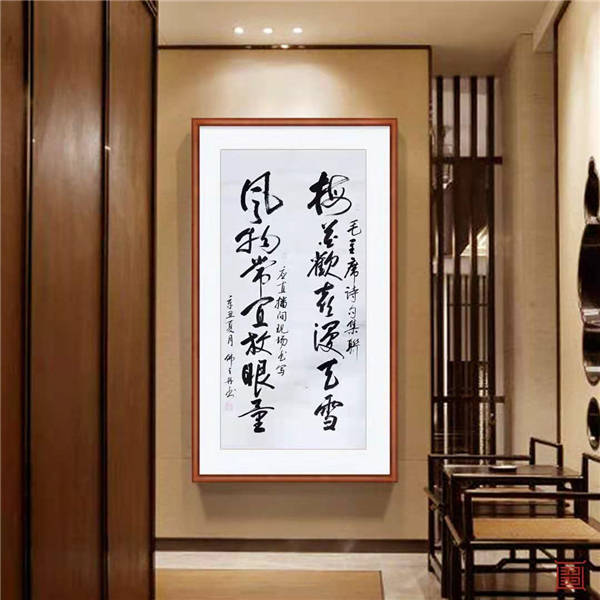 梅花歡喜漫天雪
毛主席诗句集聯
风物常宜放眼量
应直播间现场书写
辛丑夏月